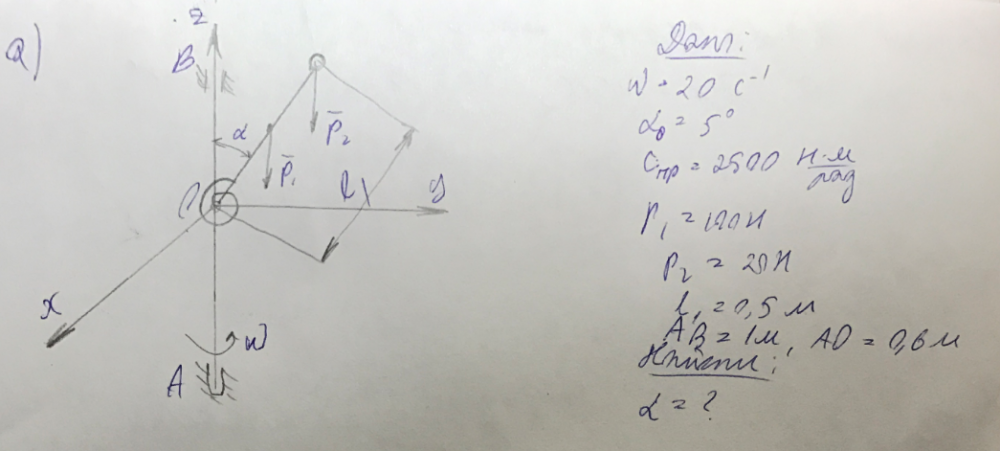 a)
z
B
α
P̄₂
P̄₁
O
l
y
x
ω
A
Дано:
ω = 20 с⁻¹
α₀ = 5°
Cпр = 2500 Н·м/рад
P₁ = 100 Н
P₂ = 20 Н
l₁ = 0,5 м
AB = 1 м, AO = 0,6 м
Найти:
α = ?